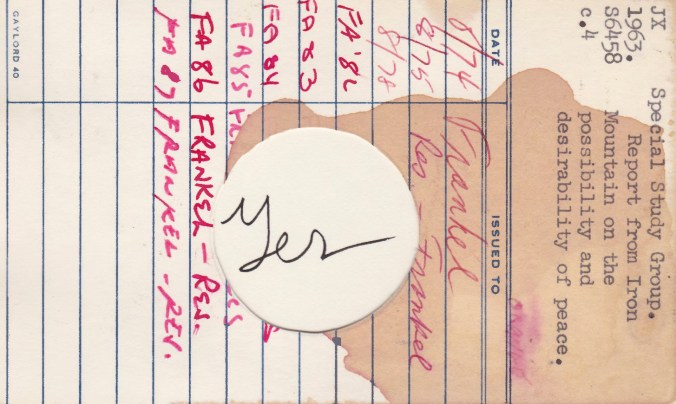 JX Special Study Group.
1963. Report from Iron
S6458 Mountain on the
c.4 possibility and
desirability of peace.
DATE ISSUED TO
8/74 Frankel
8/75 Res - Frankel
8/78
FA '82
FA 83
FA 84
FA85
FA 86 FRANKEL - RES.
FA 87 FRANKEL - RES.
GAYLORD 40
Yes